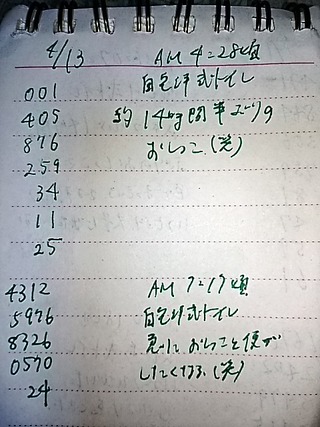 4/13 AM 4:28頃
001 自宅洋式トイレ
405 約14時間半ぶりの
876 おしっこ(笑)
259
34
11
25
4312 AM 7:19頃
5976 自宅洋式トイレ
8326 急におしっこと便が
0570 したくなる(笑)
24